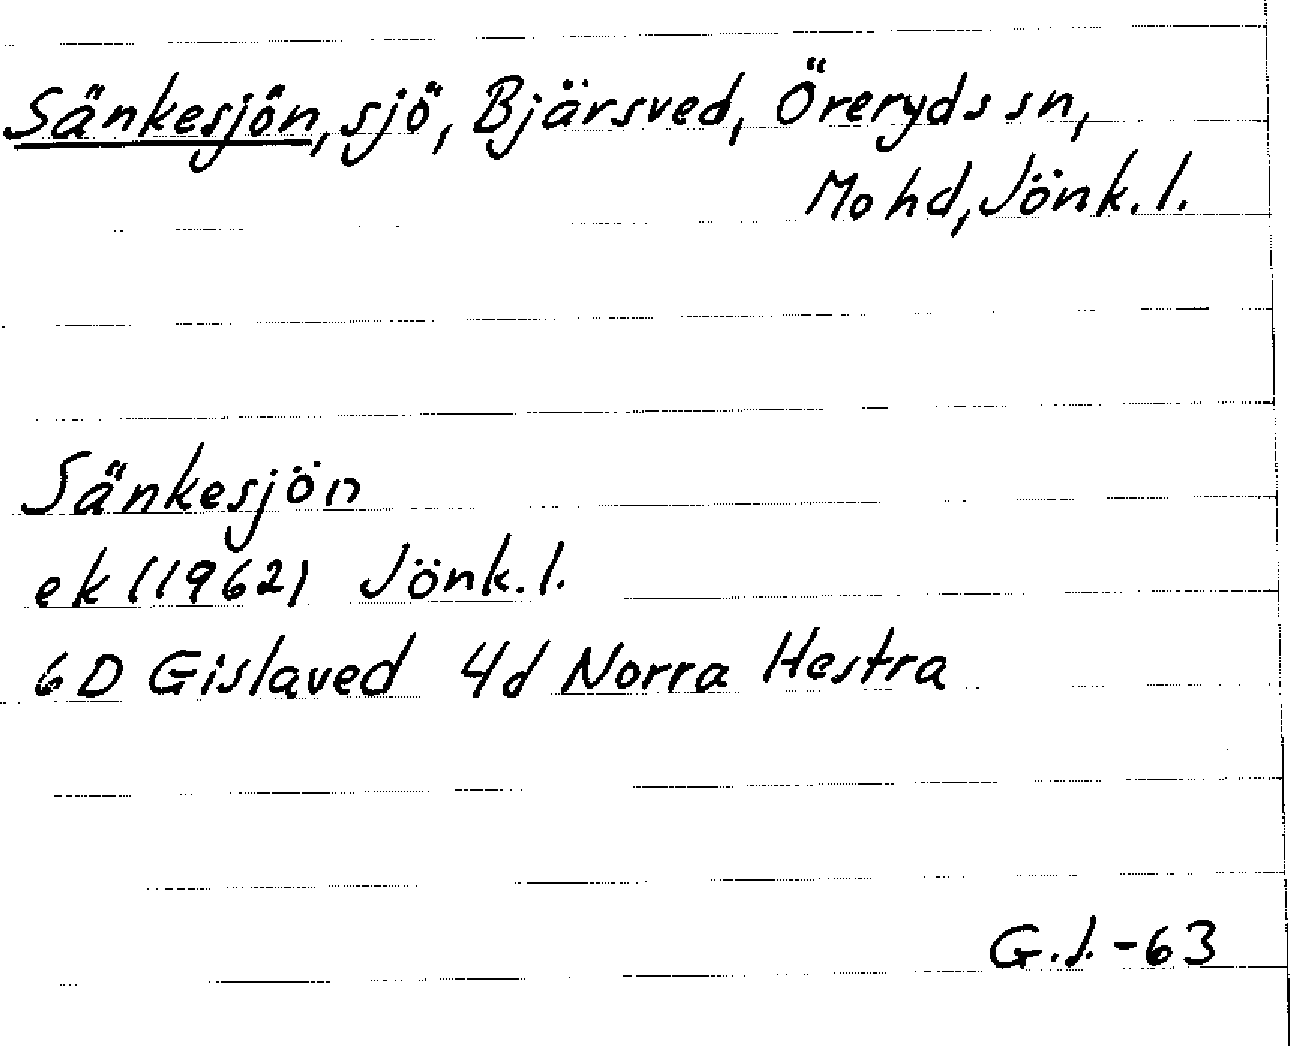 Sänkesjön, sjö, Bjärsved, Öreryds sn,
Mo hd, Jönk. l.
Sänkesjön
ek (1962) Jönk. l.
6D Gislaved 4d Norra Hestra
G.J. -63